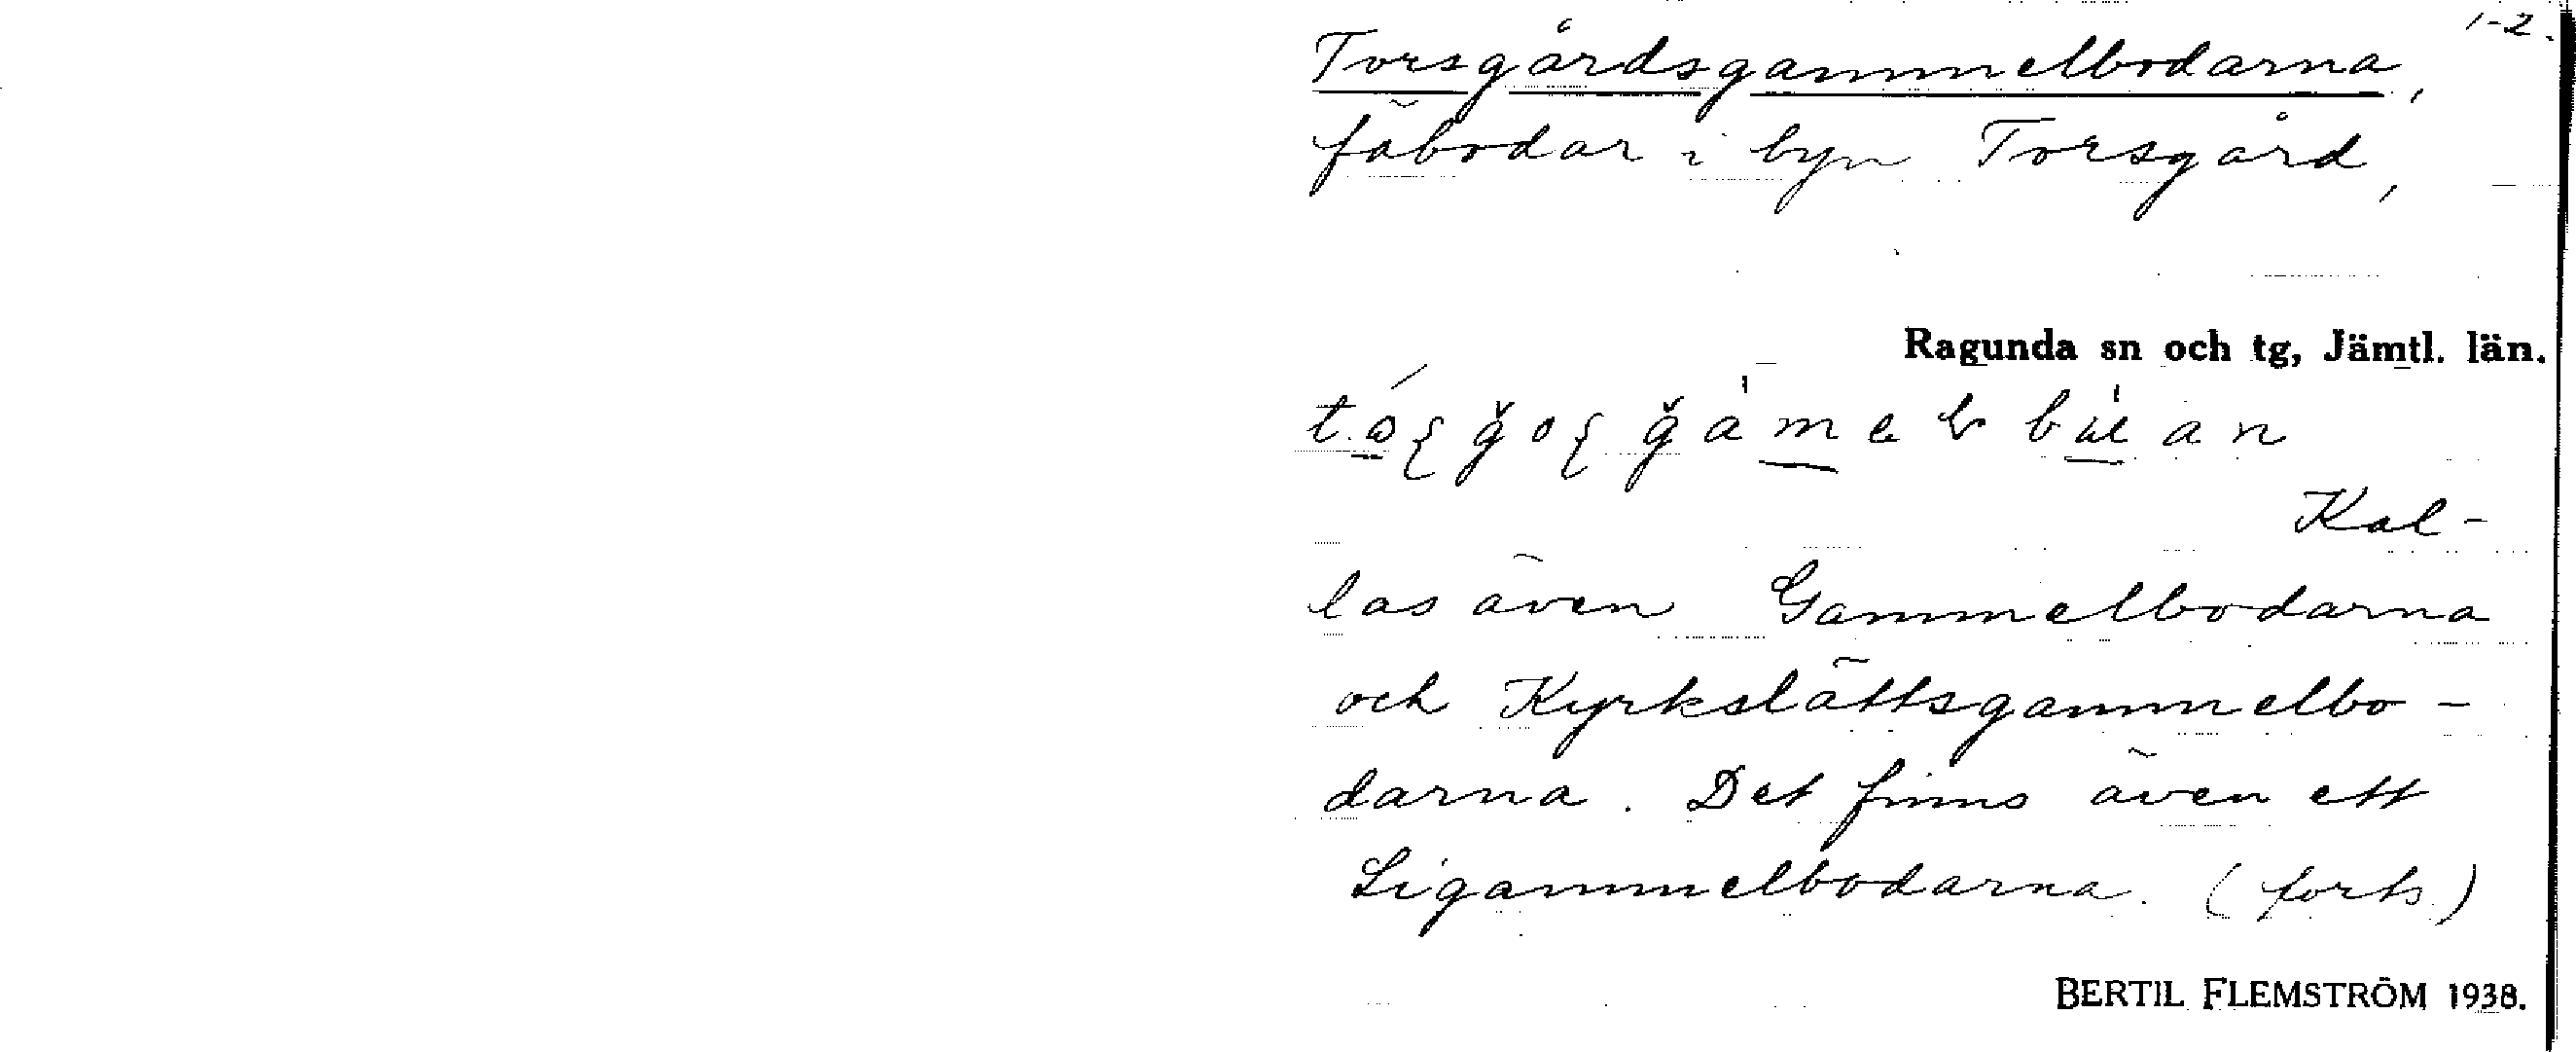 1-2.
Torsgårdsgammelbodarna,
fäbodar i byn Torsgård,
Ragunda sn och tg, Jämtl. län.
Kal-
las även Gammelbodarna
och Kyrkslättsgammelbo-
darna. Det finns även ett
Ligammelbodarna. (forts.)
BERTIL FLEMSTRÖM 1938.